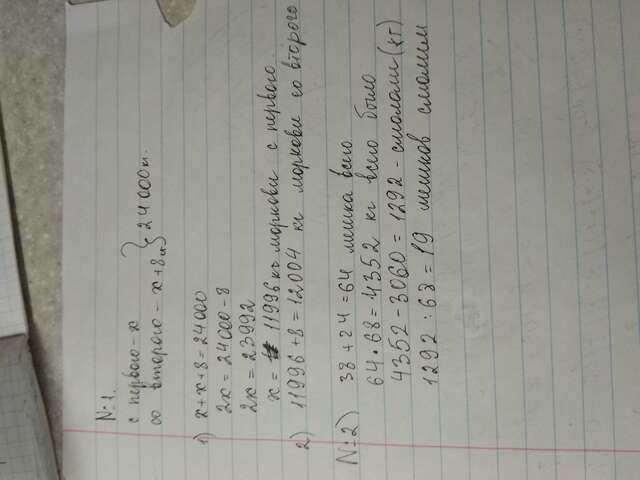 №1.
с первого - x
со второго - x + 8 } 24 000 кг.
1) x + x + 8 = 24000
2x = 24000 - 8
2x = 23992
x = 11996 кг моркови с первого
2) 11996 + 8 = 12004 кг моркови со второго
№2) 38 + 24 = 64 мешка всего
64 • 68 = 4352 кг всего было
4352 - 3060 = 1292 - смолали (кг)
1292 : 68 = 19 мешков смололи